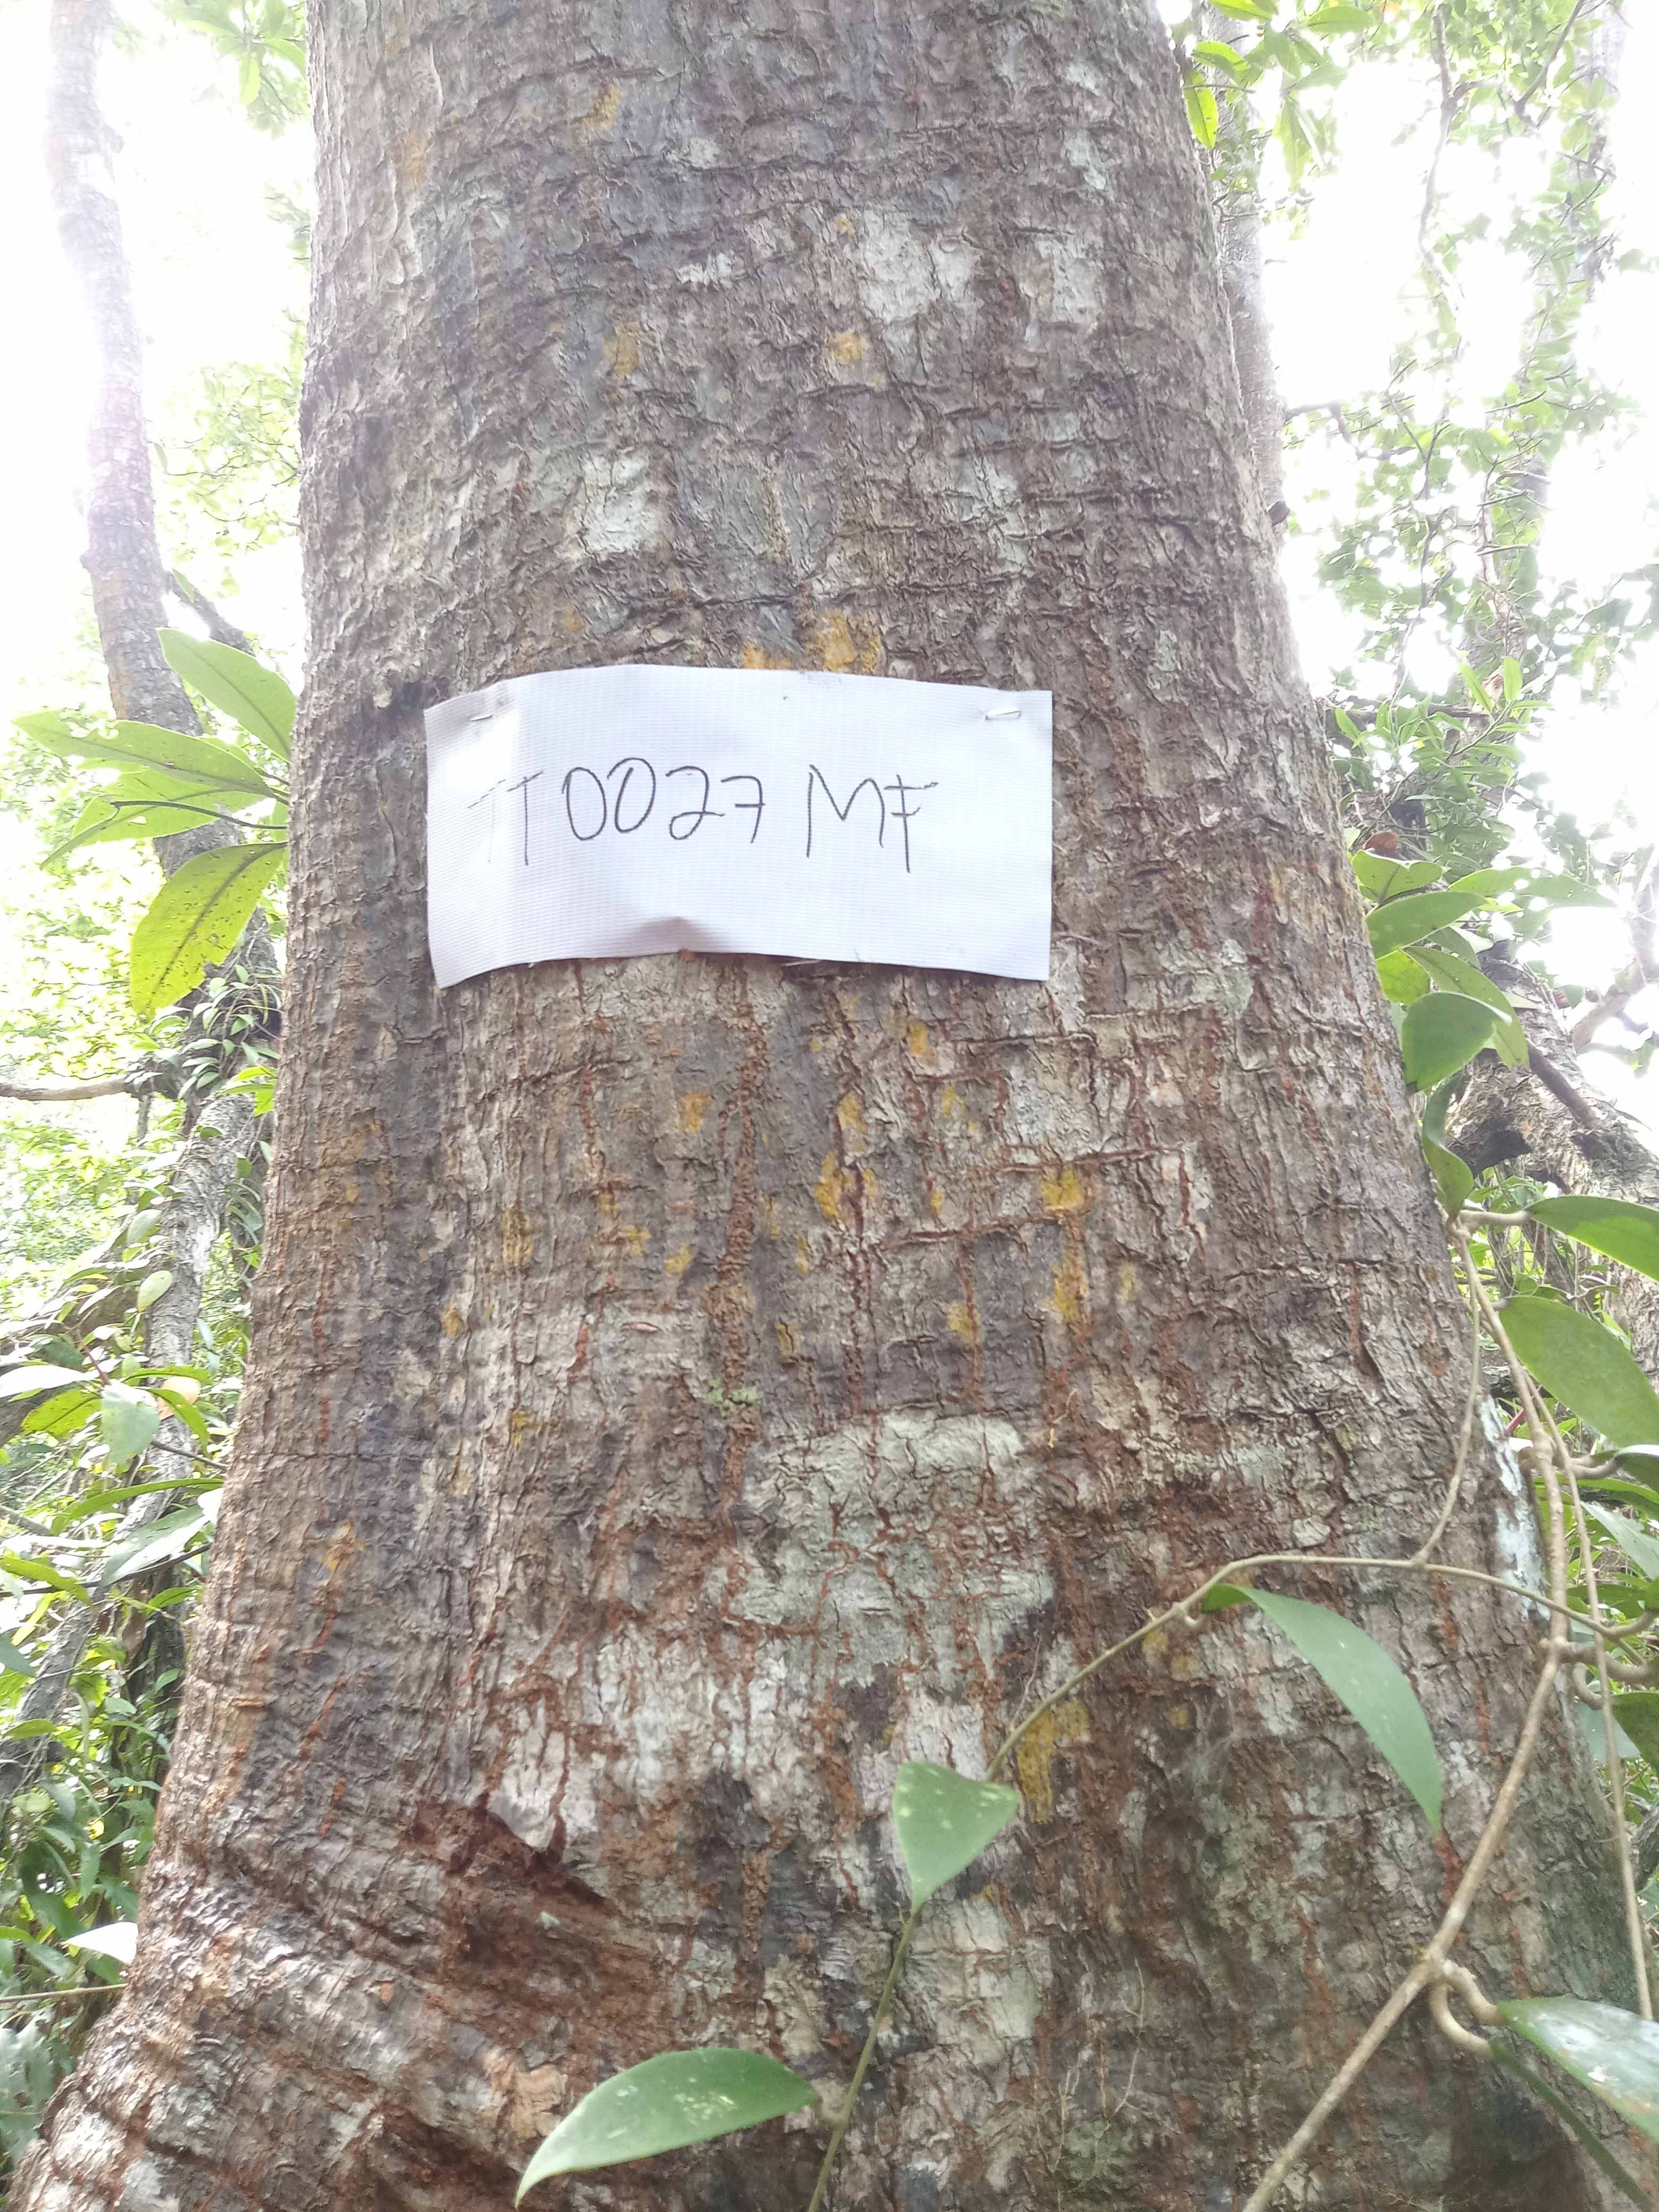 TT0027 MF